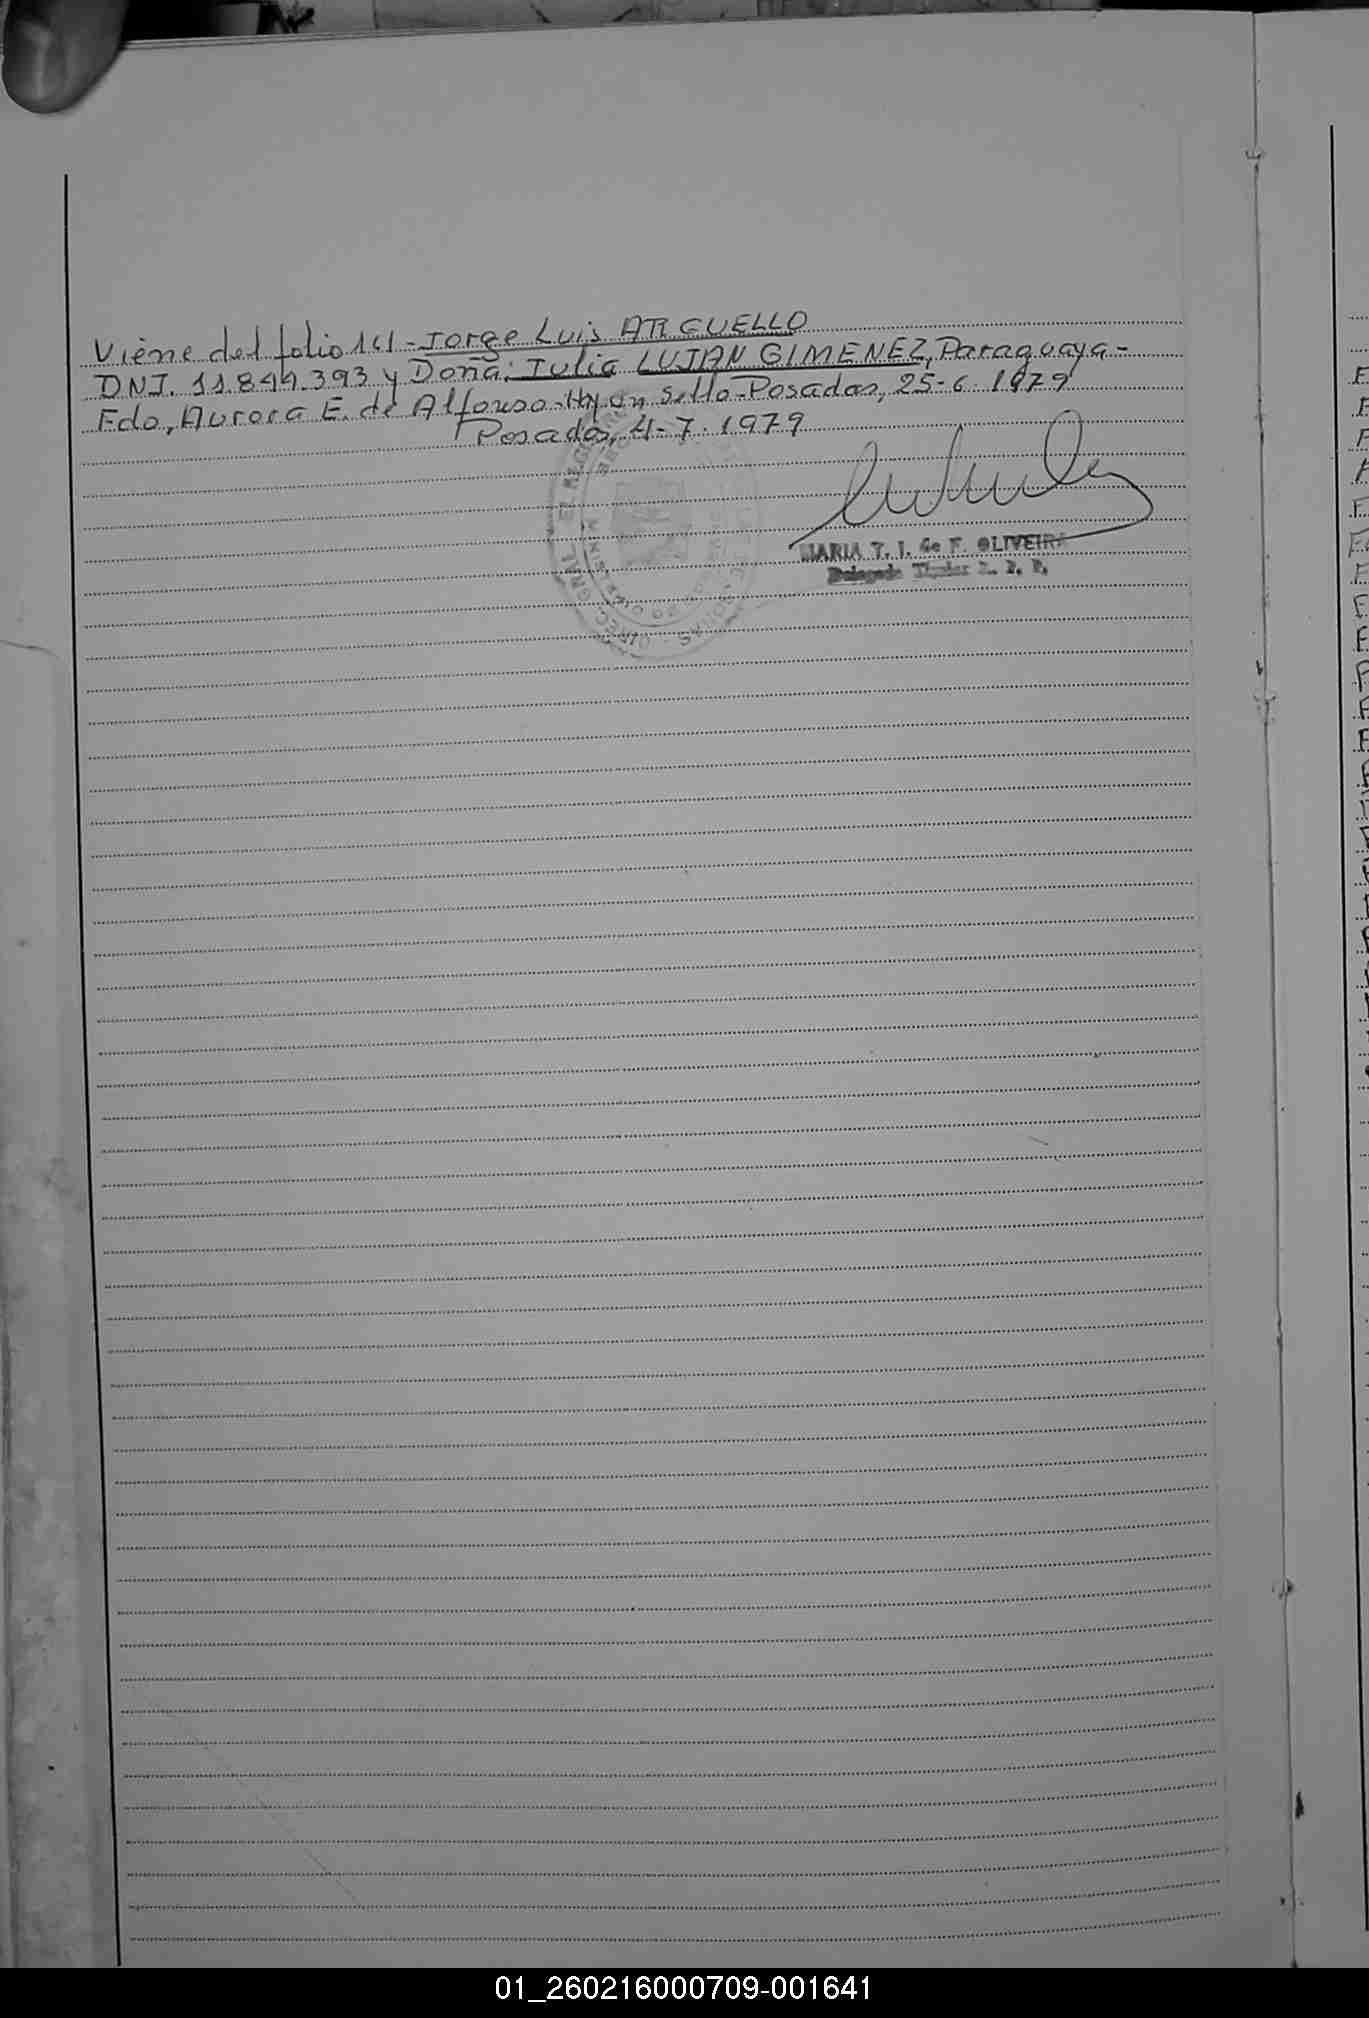 Viene del folio 141 - Jorge Luis ARGUELLO
DNI. 11.844.393 y Doña: Julia LUJAN GIMENEZ, Paraguaya -
Fdo, Aurora E. de Alfonso - Hay un sello - Posadas, 25-6-1979
Posadas, 4-7-1979
MARIA T. I. de F. OLIVEIRA
Delegado Titular R. P.
01_260216000709-001641